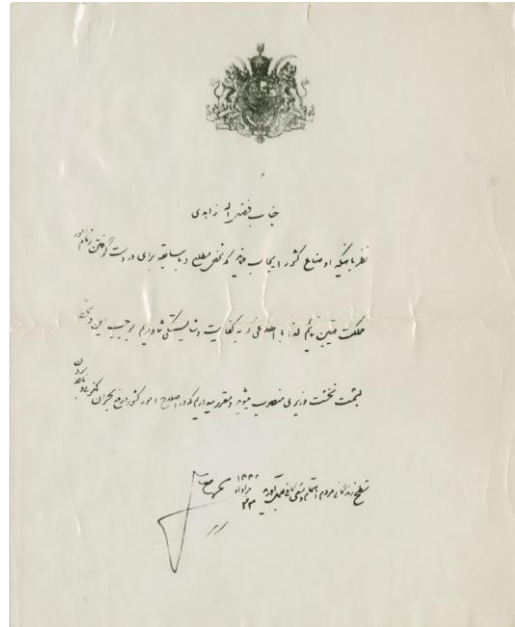 جناب فضل اله زاهدی
نظر باینکه اوضاع کشور ایجاب مینماید که شخص مطلع و با سابقه‌ای برای در دست گرفتن زمام امور
مملکت تعیین نمائیم لذا با اطلاعی که به کفایت و شایستگی شما داریم بموجب این دستخط
بسمت نخست وزیری منصوب میشوید و مقرر میداریم که در اصلاح امور کشور و رفع بحران کنونی و بالا بردن
سطح زندگانی مردم اهتمام و سعی کافی بعمل آورید
۲۲ مرداد ماه ۱۳۳۲